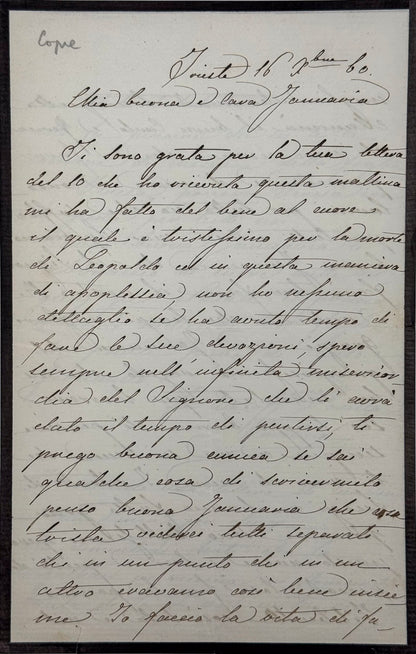 Copie
Trieste 16 Xbre 60.
Mia buona e cara Januaria
Ti sono grata per la tua lettera
del 10 che ho ricevuta questa mattina
mi ha fatto del bene al cuore
il quale è tristessimo per la morte
di Leopoldo ed in questa maniera
di apoplessia, non ho nessuno
dettaglio se ha avuto tempo di
fare le sue devozioni, spero
sempre nell' infinita misericor
dia del Signore che li avrà
dato il tempo di pentirsi, ti
prego buona amica se sai
qualche cosa di scrivermelo
penso buona Januaria che cosa
trista vederci tutti separati
chi in un punto chi in un
altro eravamo così bene insie
me. Io faccio la vita di fa-